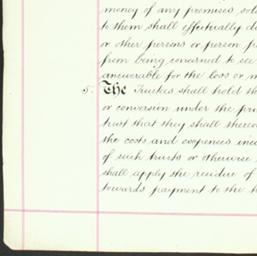 money of any premises sol
to them shall effectually di
or other persons or person f
from being concerned to see
answerable for the loss or m
5. The Trustees shall hold th
or conversion under the pr
trust that they shall thereo
the costs and expenses inc
of such trusts or otherwise
shall apply the residue of
towards payment to the t